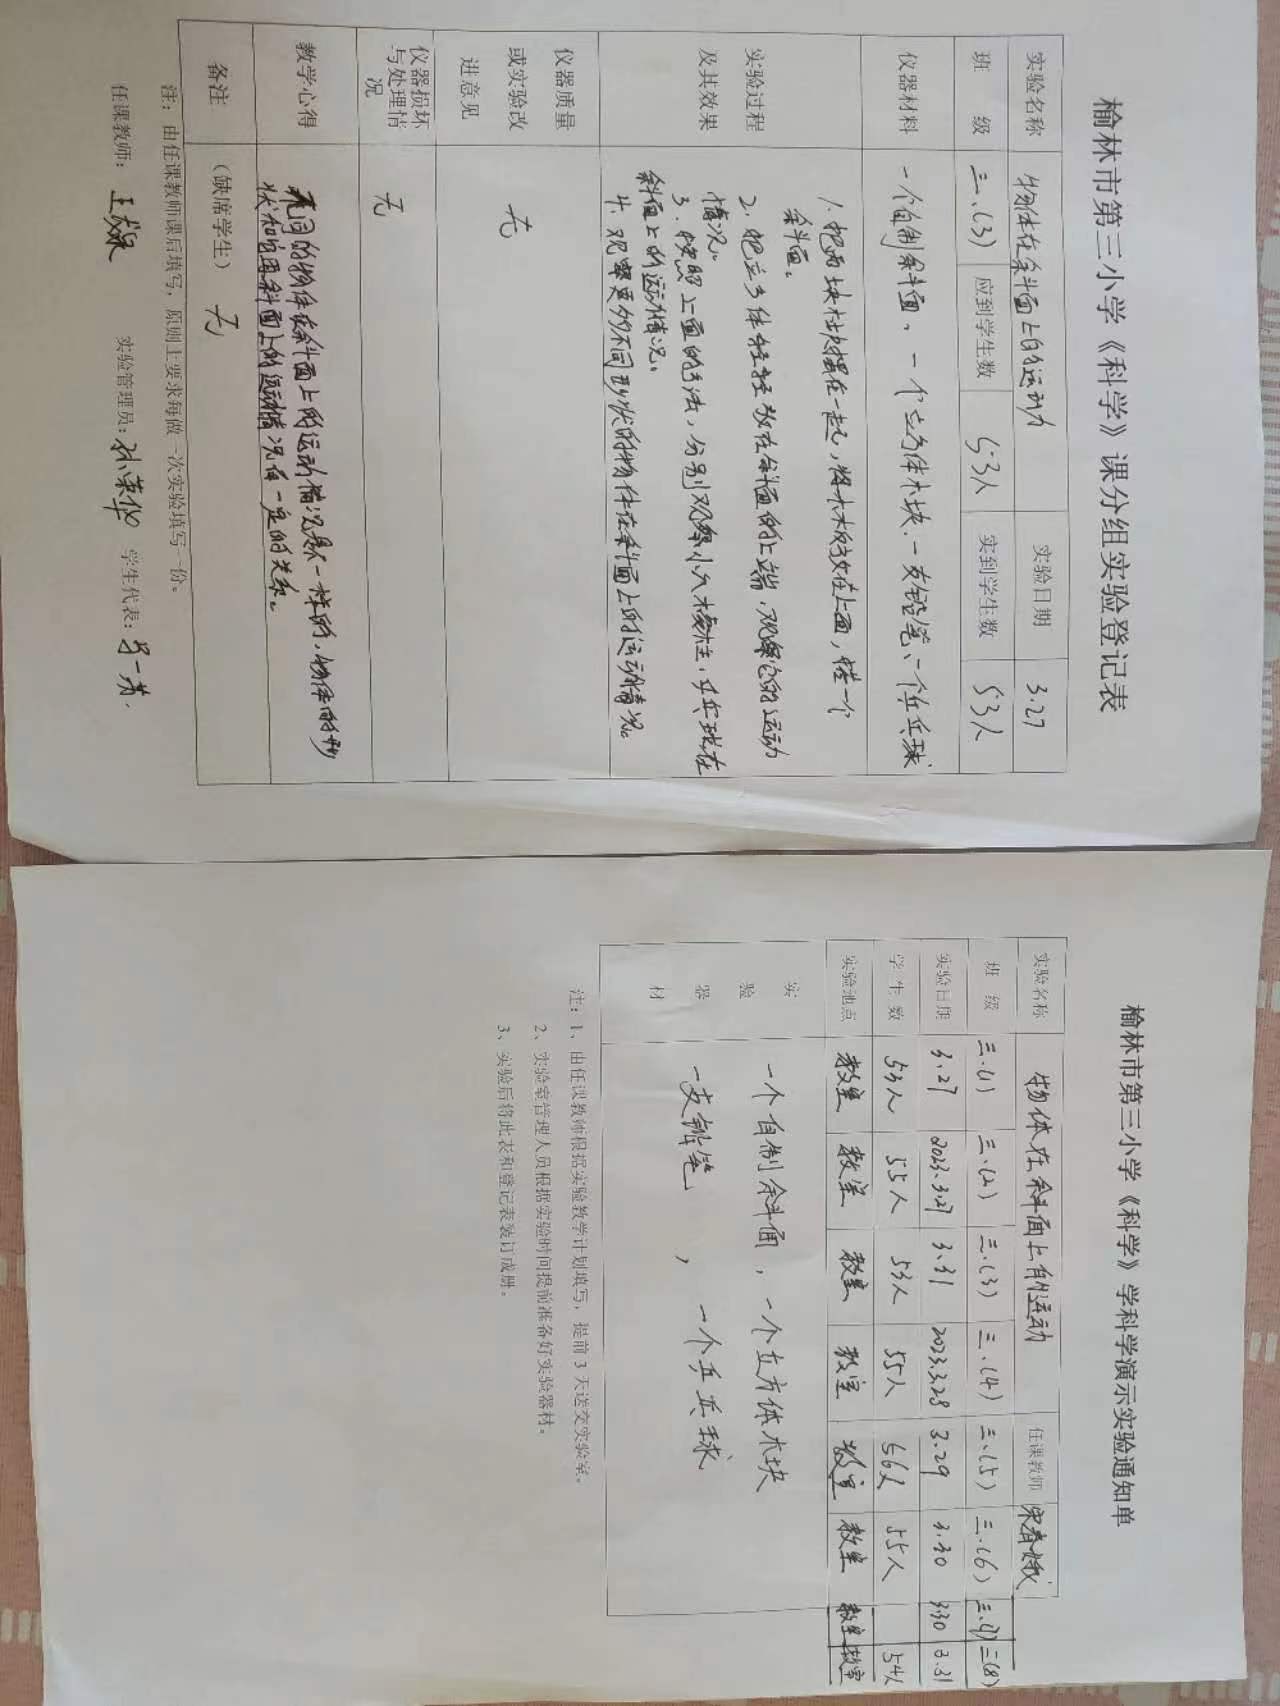 榆林市第三小学《科学》课分组实验登记表
实验名称 物体在斜面上的运动 实验日期 3.27
班 级 三.(3) 应到学生数 53人 实到学生数 53人
仪器材料 一个自制斜面、一个立方体木块.一支铅笔、一个乒乓球
实验过程
及其效果
1. 把两块木块摞在一起,将木板放在上面,搭一个
斜面。
2. 把立方体轻轻放在斜面的上端,观察它的运动
情况。
3. 按照上面的方法,分别观察小六棱柱,乒乓球在
斜面上的运动情况。
4. 观察更多的不同形状的物体在斜面上的运动情况。
仪器质量
或实验改
进意见
无
仪器损坏
与处理情
况
无
教学心得
不同的物体在斜面上的运动情况是不一样的,物体的形
状和它在斜面上的运动情况有一定的关系。
备注 (缺席学生) 无
注:由任课教师课后填写,原则上要求每做一次实验填写一份。
任课教师: 王 实验管理员: 孙荣华 学生代表:
榆林市第三小学《科学》学科学演示实验通知单
实验名称 物体在斜面上的运动 任课教师 宋春娥
班 级 三.(1) 三.(2) 三.(3) 三.(4) 三.(5) 三.(6) 三.(7) 三(8)
实验日期 3.27 2023.3.27 3.31 2023.3.28 3.29 3.30 3.30 3.31
学生数 53人 55人 53人 55人 56人 55人 54人
实验地点 教室 教室 教室 教室 教室 教室 教室 教室
实
验
器
材
一个自制斜面,一个立方体木块
一支铅笔,一个乒乓球
注:1、由任课教师根据实验教学计划填写,提前 3 天送交实验室。
2、实验室管理人员根据实验时间提前准备好实验器材。
3、实验后将此表和登记表装订成册。